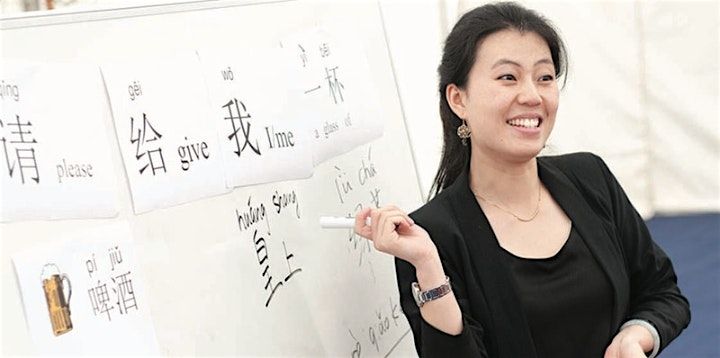 qǐng
请 please
gěi
给 give
wǒ
我 I/me
yì bēi
一杯
a glass of
huáng shang
皇上
lǜ chá
pí jiǔ
啤酒